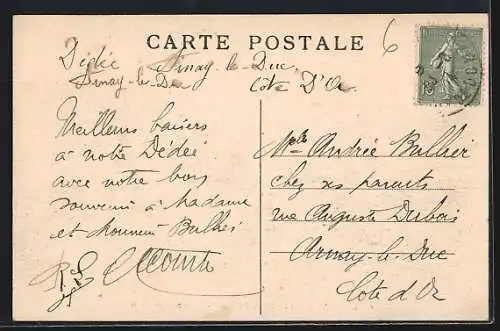 CARTE POSTALE
6
Dédée Arnay-le-Duc
Arnay-le-Duc Côte D'Or
Meilleurs baisers
à notre Dédée
avec notre bon
souvenir à Madame
et Monsieur
Mlle Andrée
chez ses parents
rue Auguste Dubois
Arnay-le-Duc
Côte d'Or